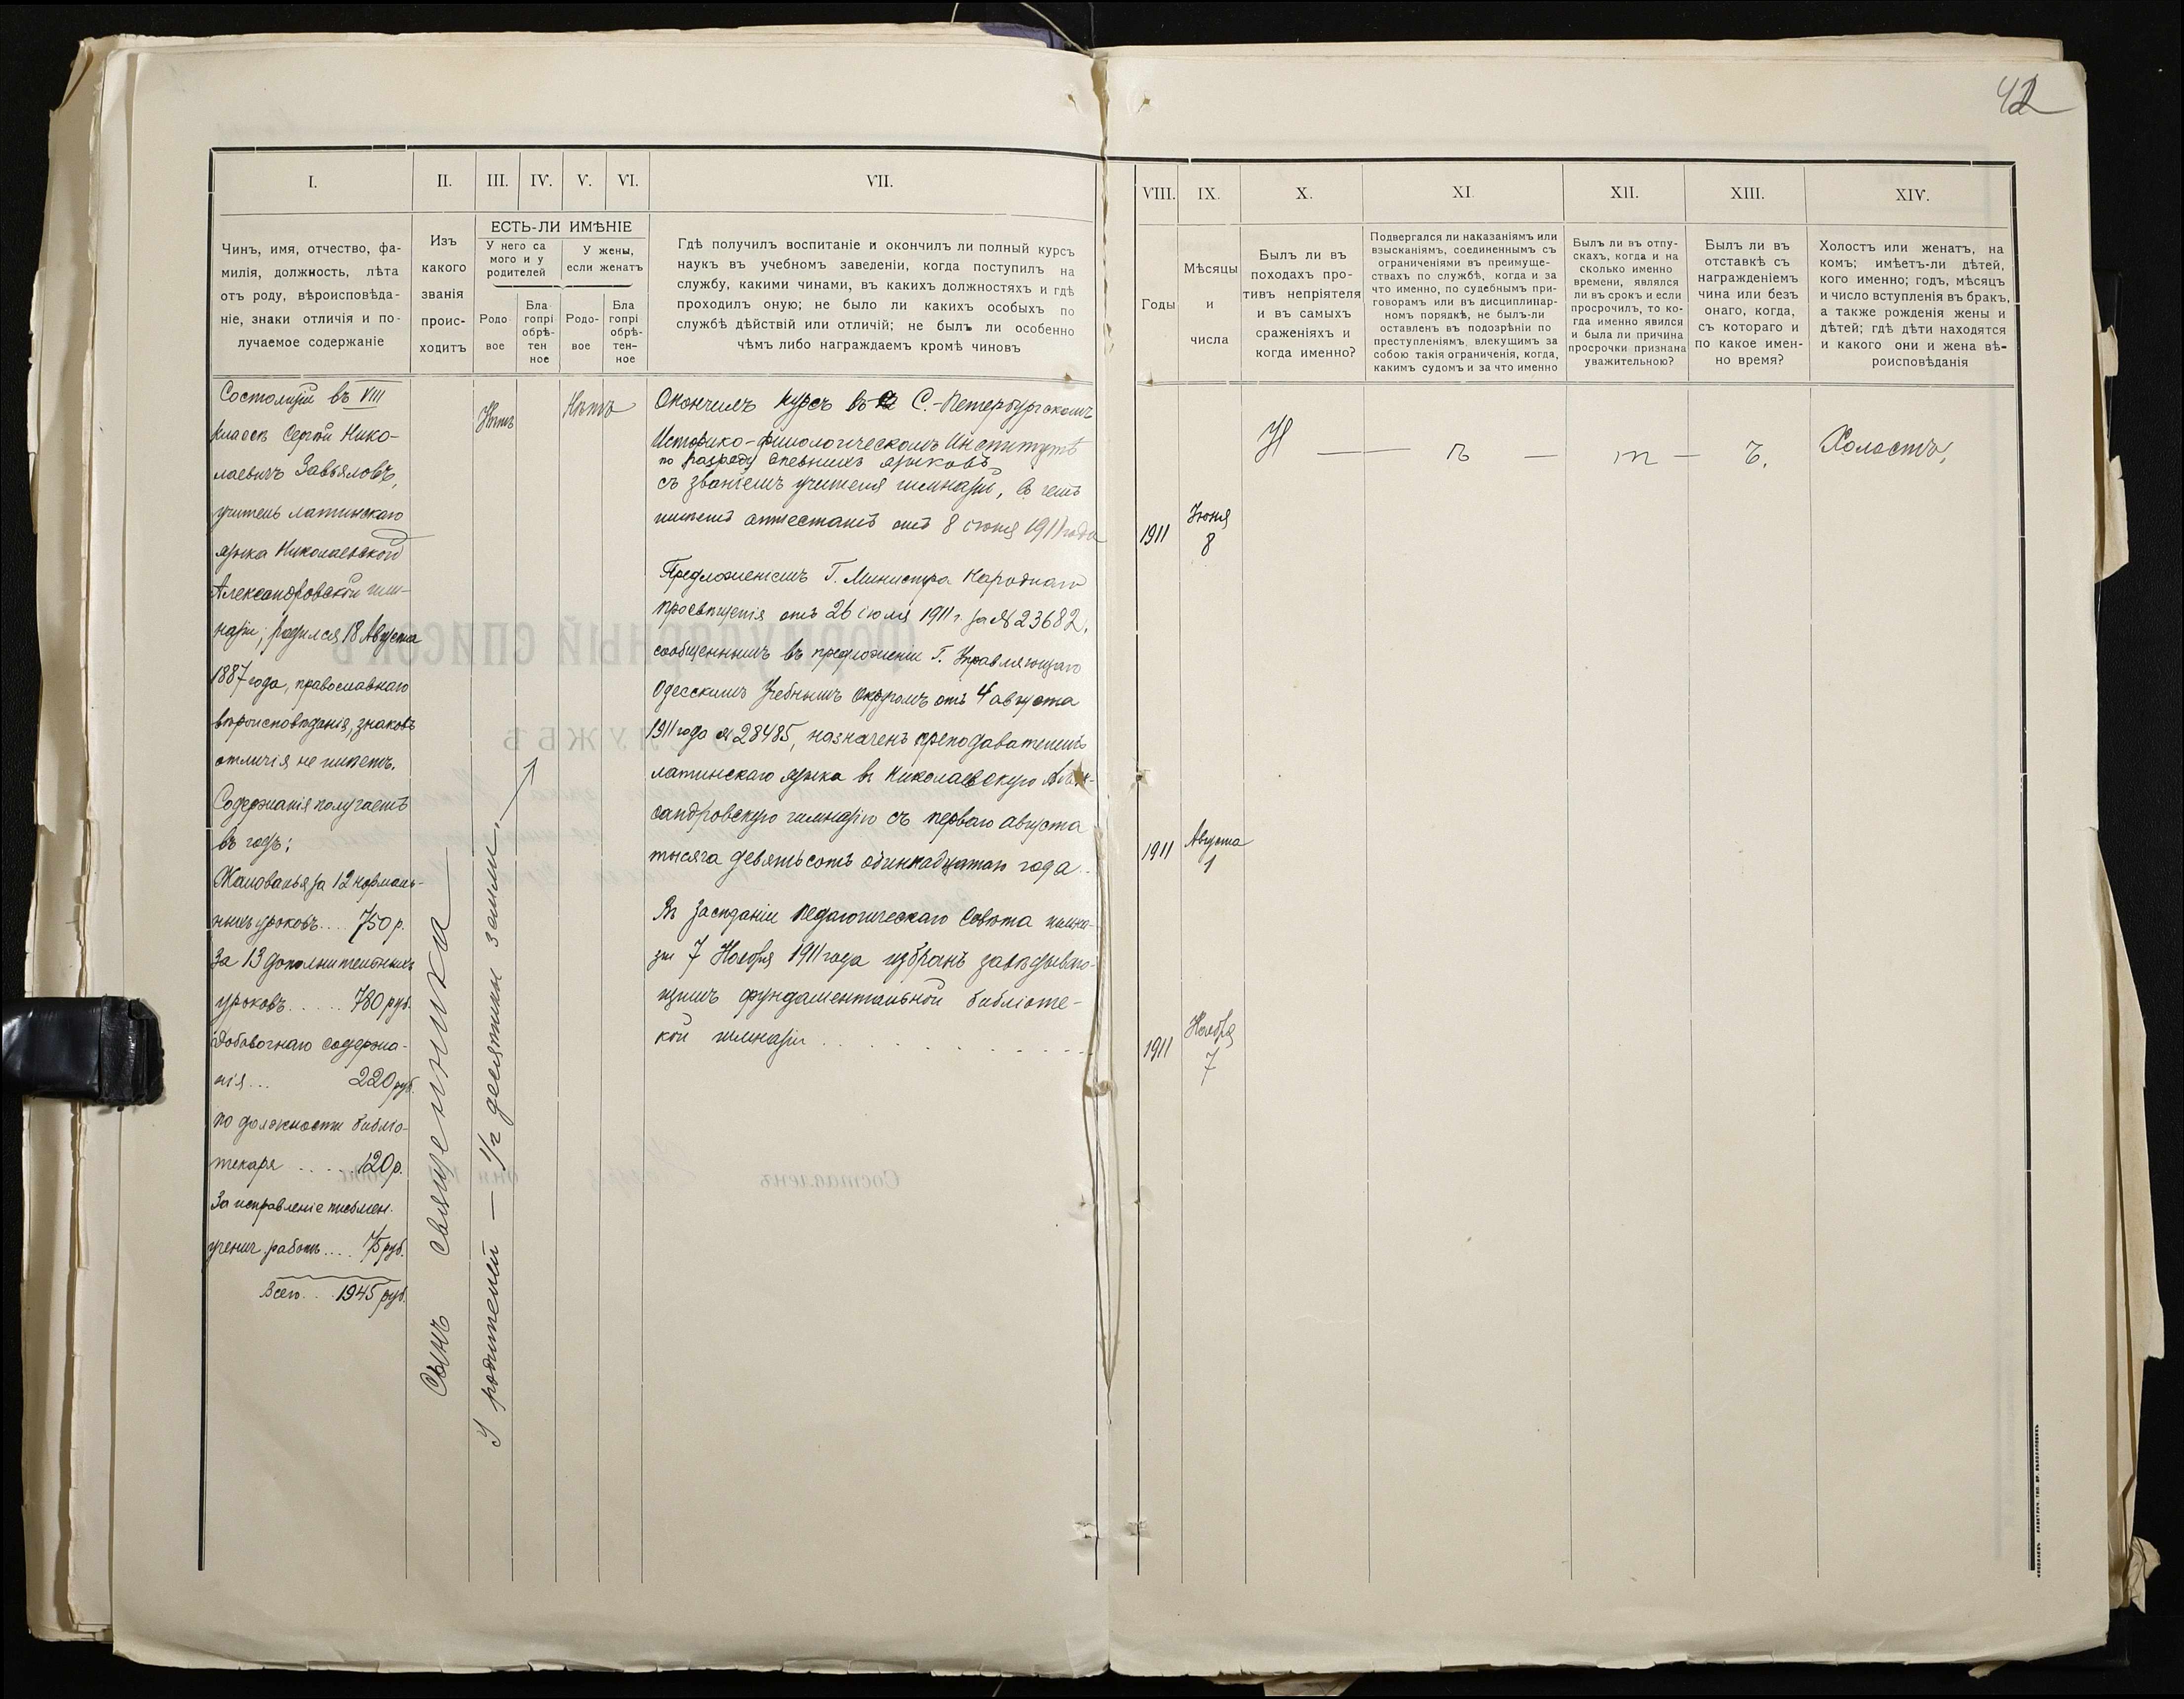 42
I.
II.
III.
IV.
V.
VI.
VII.
ЕСТЬ-ЛИ ИМѢНІЕ
Чинъ, имя, отчество, фа-
милія, должность, лѣта
отъ роду, вѣроисповѣда-
ніе, знаки отличія и по-
лучаемое содержаніе
Изъ
какого
званія
проис-
ходитъ
У него са
мого и у
родителей
У жены,
если женатъ
Родо-
вое
Бла
гопрі
обрѣ-
тен
ное
Родо-
вое
Бла
гопрі
обрѣ-
тен-
ное
Гдѣ получилъ воспитаніе и окончилъ ли полный курсъ
наукъ въ учебномъ заведеніи, когда поступилъ на
службу, какими чинами, въ какихъ должностяхъ и гдѣ
проходилъ оную; не было ли какихъ особыхъ по
службѣ дѣйствій или отличій; не былъ ли особенно
чѣмъ либо награждаемъ кромѣ чиновъ
Состоящій въ VIII
классѣ Сергѣй Нико-
лаевичъ Завьяловъ,
учитель латинскаго
языка Николаевской
Александровской гим-
назіи; родился 18 Августа
1887 года, православнаго
вѣроисповѣданія, знаковъ
отличія не имѣетъ.
Содержанія получаетъ
въ годъ:
Жалованья за 12 нормаль-
ныхъ уроковъ.... 750 р.
За 13 дополнительныхъ
уроковъ...... 780 руб.
Добавочнаго содержа-
нія... 220 руб.
по должности библіо-
текаря ..... 120 р.
За исправленіе письмен.
ученич. работъ.... 75 руб.
Всего... 1945 руб.
Сынъ священника
Нѣтъ
У родителей — 1/2 десятины земли.
Нѣтъ
Окончилъ курсъ въ С.-Петербургскомъ
Историко-филологическомъ Институтѣ
по разряду древнихъ языковъ
съ званіемъ учителя гимназіи, въ чемъ
имѣетъ аттестатъ отъ 8 іюня 1911 года
Предложеніемъ Г. Министра Народнаго
Просвѣщенія отъ 26 іюля 1911 г. за № 23682,
сообщеннымъ въ предложеніи Г. Управляющаго
Одесскимъ Учебнымъ Округомъ отъ 4 августа
1911 года № 28485, назначенъ преподавателемъ
латинскаго языка въ Николаевскую Алек-
сандровскую гимназію съ перваго августа
тысяча девятьсотъ одиннадцатаго года.
Въ засѣданіи Педагогическаго Совѣта гимна-
зіи 7 Ноября 1911 года избранъ завѣдываю-
щимъ фундаментальной библіоте-
кой гимназіи
VIII.
IX.
X.
XI.
XII.
XIII.
XIV.
Годы
Мѣсяцы
и
числа
Былъ ли въ
походахъ про-
тивъ непріятеля
и въ самыхъ
сраженіяхъ и
когда именно?
Подвергался ли наказаніямъ или
взысканіямъ, соединеннымъ съ
ограниченіями въ преимуще-
ствахъ по службѣ, когда и за
что именно, по судебнымъ при-
говорамъ или въ дисциплинар-
номъ порядкѣ, не былъ-ли
оставленъ въ подозрѣніи по
преступленіямъ, влекущимъ за
собою такія ограниченія, когда,
какимъ судомъ и за что именно
Былъ ли въ отпу-
скахъ, когда и на
сколько именно
времени, являлся
ли въ срокъ и если
просрочилъ, то ко-
гда именно явился
и была ли причина
просрочки признана
уважительною?
Былъ ли въ
отставкѣ съ
награжденіемъ
чина или безъ
онаго, когда,
съ котораго и
по какое имен-
но время?
Холостъ или женатъ, на
комъ; имѣетъ-ли дѣтей,
кого именно; годъ, мѣсяцъ
и число вступленія въ бракъ,
а также рожденія жены и
дѣтей; гдѣ дѣти находятся
и какого они и жена вѣ-
роисповѣданія
Н — ѣ — т — ъ.
Холостъ.
1911
Іюня
8
1911
Августа
1
1911
Ноября
7